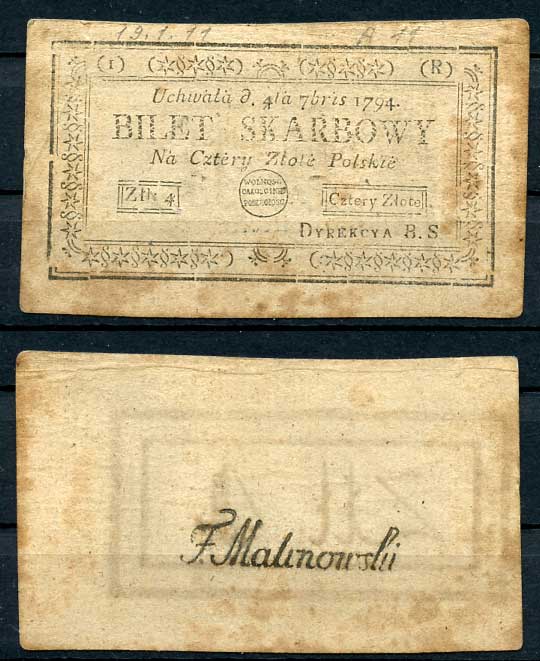 19.1.11 A 11
(1) (R)
Uchwała d. 4ta 7bris 1794.
BILET SKARBOWY
Na Cztery Złote Polskie
Złł: 4 WOLNOSC CAŁOSC I NIE PODLEGŁOSC Cztery Złote
DYREKCYA B. S
F. Malinowski